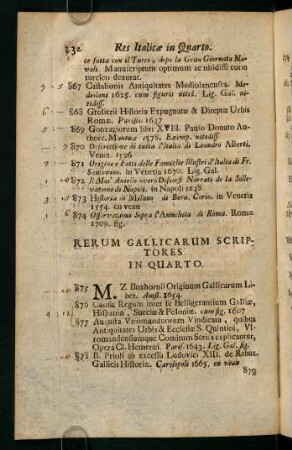 232 Res Italicæ in Quarto.
te fatta con il Turco, dopo la Gran Giornata Na-
vale. Manuscriptum optimum ac nitidiss corio
turcico deaurat.
7 867 Castalionis Antiquitates Mediolanenses. Me-
diolani 1625. cum figuris nitid. Lig. Gal. ni-
tidiss.
868 Grolierii Historia Expugnatæ & Direptæ Urbis
Romæ. Parisiis 1637
869 Gonzagiorum libri XVIII. Paulo Donato Au-
thore. Mantuæ 1578. Exemp. nitidiss.
870 Descrittione di tutta l'Italia di Leandro Alberti,
Venet. 1596
871 Origine e Fatti delle Famiglie Illustri d'Italia di Fr.
Sansovino. in Venetia 1670. Lig. Gal.
872 Il Mas' Aniello overo Discorsi Narrati de la Solle-
vatione de Napoli. in Napoli 1648
873 Historia di Milano di Bern. Corio. in Venetia
1554. en veau
874 Osservazioni Sopra l'Antichita di Roma. Roma
1709. fig.
RERUM GALLICARUM SCRIP-
TORES
IN QUARTO.
875 M. Z Boxhornii Originum Gallicarum Li-
ber. Amst. 1654.
876 Causæ Regum inter se Belligerantium Galliæ,
Hispaniæ, Sueciæ & Poloniæ. cum fig. 1607
877 Augusta Viromanduorum Vindicata, quibus
Antiquitates Urbis & Ecclesiæ S. Quintini, Vi-
romandensiumque Comitum Series explicantur,
Opera Cl. Hemeræi. Paris. 1643. Lig. Gal. fig.
878 B. Prioli ab excessu Ludovici XIII. de Rebus
Gallicis Historiæ. Carolopoli 1665. en veau
879